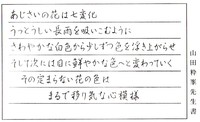 あじさいの花は七変化
うっとうしい長雨を吸いこむように
さわやかな白色から少しずつ色を浮き上がらせ
そして次には目に鮮やかな色へと変わっていく
その定まらない花の色は
まるで移り気な心模様
山田粋峯先生書